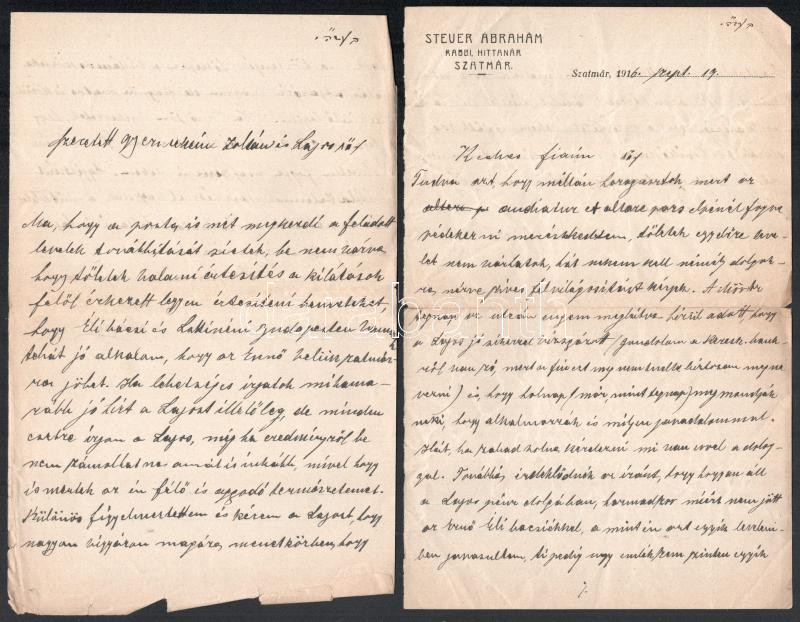 ב"ה
Szeretett gyermekeim Zoltán és Lajos
Ma, hogy a posta is mét megkezdé a feladott
levelek továbbitását sietek, be nem várva
hogy tőletek valami értesités a kilátások
felől érkezett legyen értesiteni benneteket,
hogy Éli bácsi és néni Budapesten
tehát jó alkalom, hogy az Ernő velük
ra jöhet. Ha lehetséges irjatok mihama-
rabb jó hirt a Lajost illetőleg, de minden
esetre irjon a Lajos, még ha eredményről be
nem számolhatna annál is inkább, mivel hogy
ismeritek az én félő és aggodó természetemet.
Különös figyelmeztetem és kérem a Lajost, hogy
nagyon vigyázzon magára, menetközben, hogy
STEUER ÁBRAHÁM
RABBI, HITTANÁR
SZATMÁR.
Szatmár, 1916. szept. 19.
Kedves fiaim
Tudva azt, hogy méltán haragosztok, mert az
audiatur et altera pars elvénél fogva
védekezni merészkedtem, tőletek egyelőre leve-
let nem várhatok, hát nekem kell némely dolgok-
ra nézve felvilágositást kérjek. A
tegnap az utcán engem meglátva hirül adott hogy
a Lajos jó sikerrel vizsgázott (gondolom a keresk. bank-
ról van szó, mert a fiáért meg nem tudta biztosan megne-
vezni) és hogy holnap (már mint tegnap) megmondják
neki, hogy alkalmazzák és milyen javadalommal.
Hát, ha szabad volna kérdezni mi van ezzel a dolog-
gal. Továbbá, érdeklődnék az iránt, hogy hogyan áll
a Lajos dolgában, harmadszor miért nem jött
az Ernő Éli bácsiékkal, a mint én azt egyik levelem-
ben javasoltam, ti pedig ugy emlékszem szintén egyik